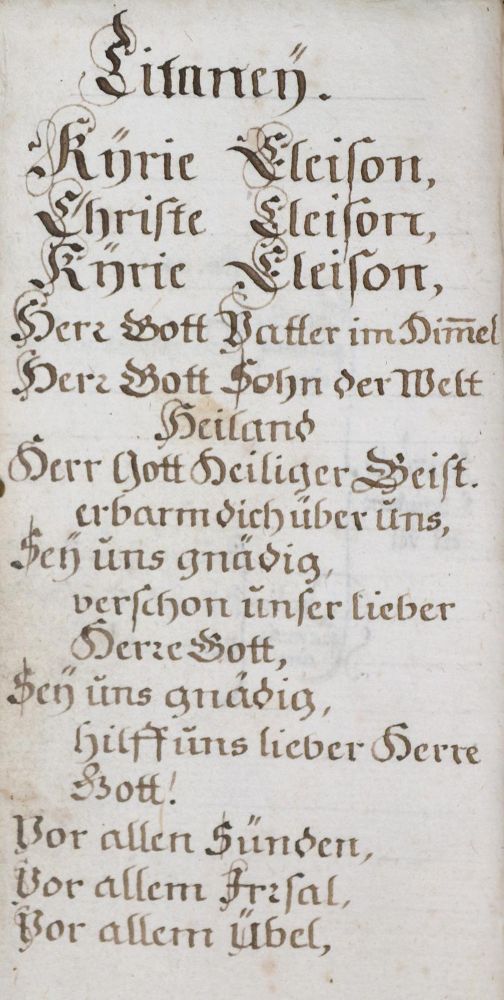 Litaneÿ.
Kÿrie Eleiſon,
Chriſte Eleiſon,
Kÿrie Eleiſon,
Herr Gott Vatter im Him̅el
Herr Gott Sohn der Welt
Heiland
Herr Gott Heiliger Geiſt.
erbarm dich über ŭns,
Seÿ ŭns gnädig,
verſchon ŭnſer lieber
Herre Gott,
Seÿ ŭns gnädig,
hilff ŭns lieber Herre
Gott!
Vor allen Sünden,
Vor allem Irrſal,
Vor allem Übel,